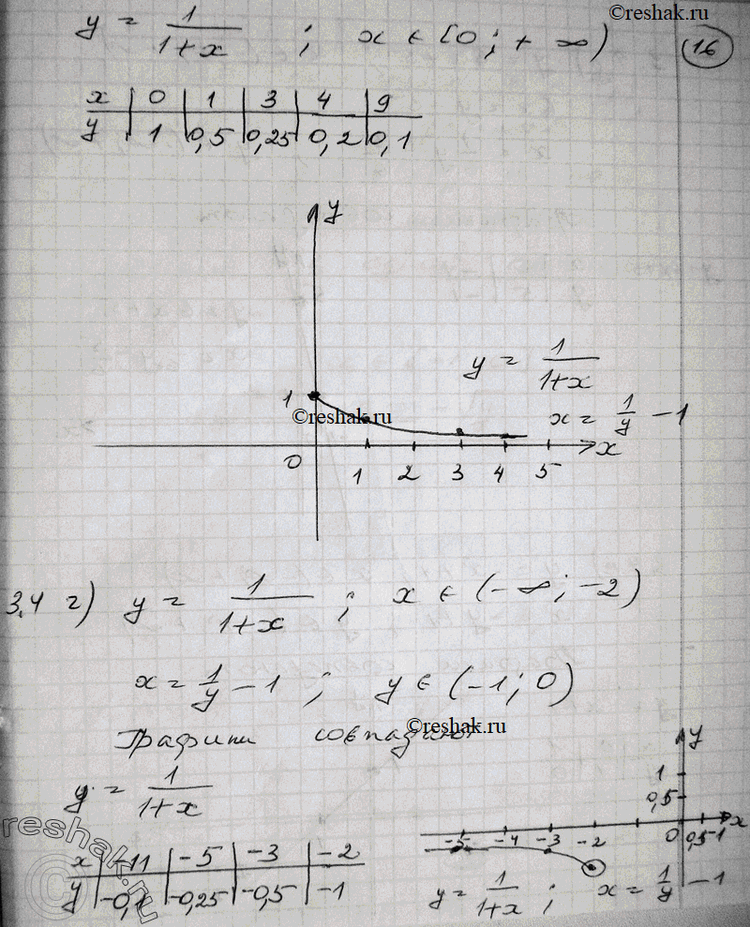 ©reshak.ru
y = 1/(1+x) ; x ∈ [0 ; + ∞) 16
x | 0 | 1 | 3 | 4 | 9
y | 1 | 0,5 | 0,25 | 0,2 | 0,1
y
y = 1/(1+x)
1
©reshak.ru
x = 1/y - 1
0 1 2 3 4 5 x
3.4 г) y = 1/(1+x) ; x ∈ (-∞ ; -2)
x = 1/y - 1 ; y ∈ (-1 ; 0)
©reshak.ru
Графики совпадают
y = 1/(1+x)
y
1
0,5
-5 -4 -3 -2 0 0,5 1 x
reshak.ru
x | -11 | -5 | -3 | -2
y | -0,1 | -0,25 | -0,5 | -1
y = 1/(1+x) ; x = 1/y - 1